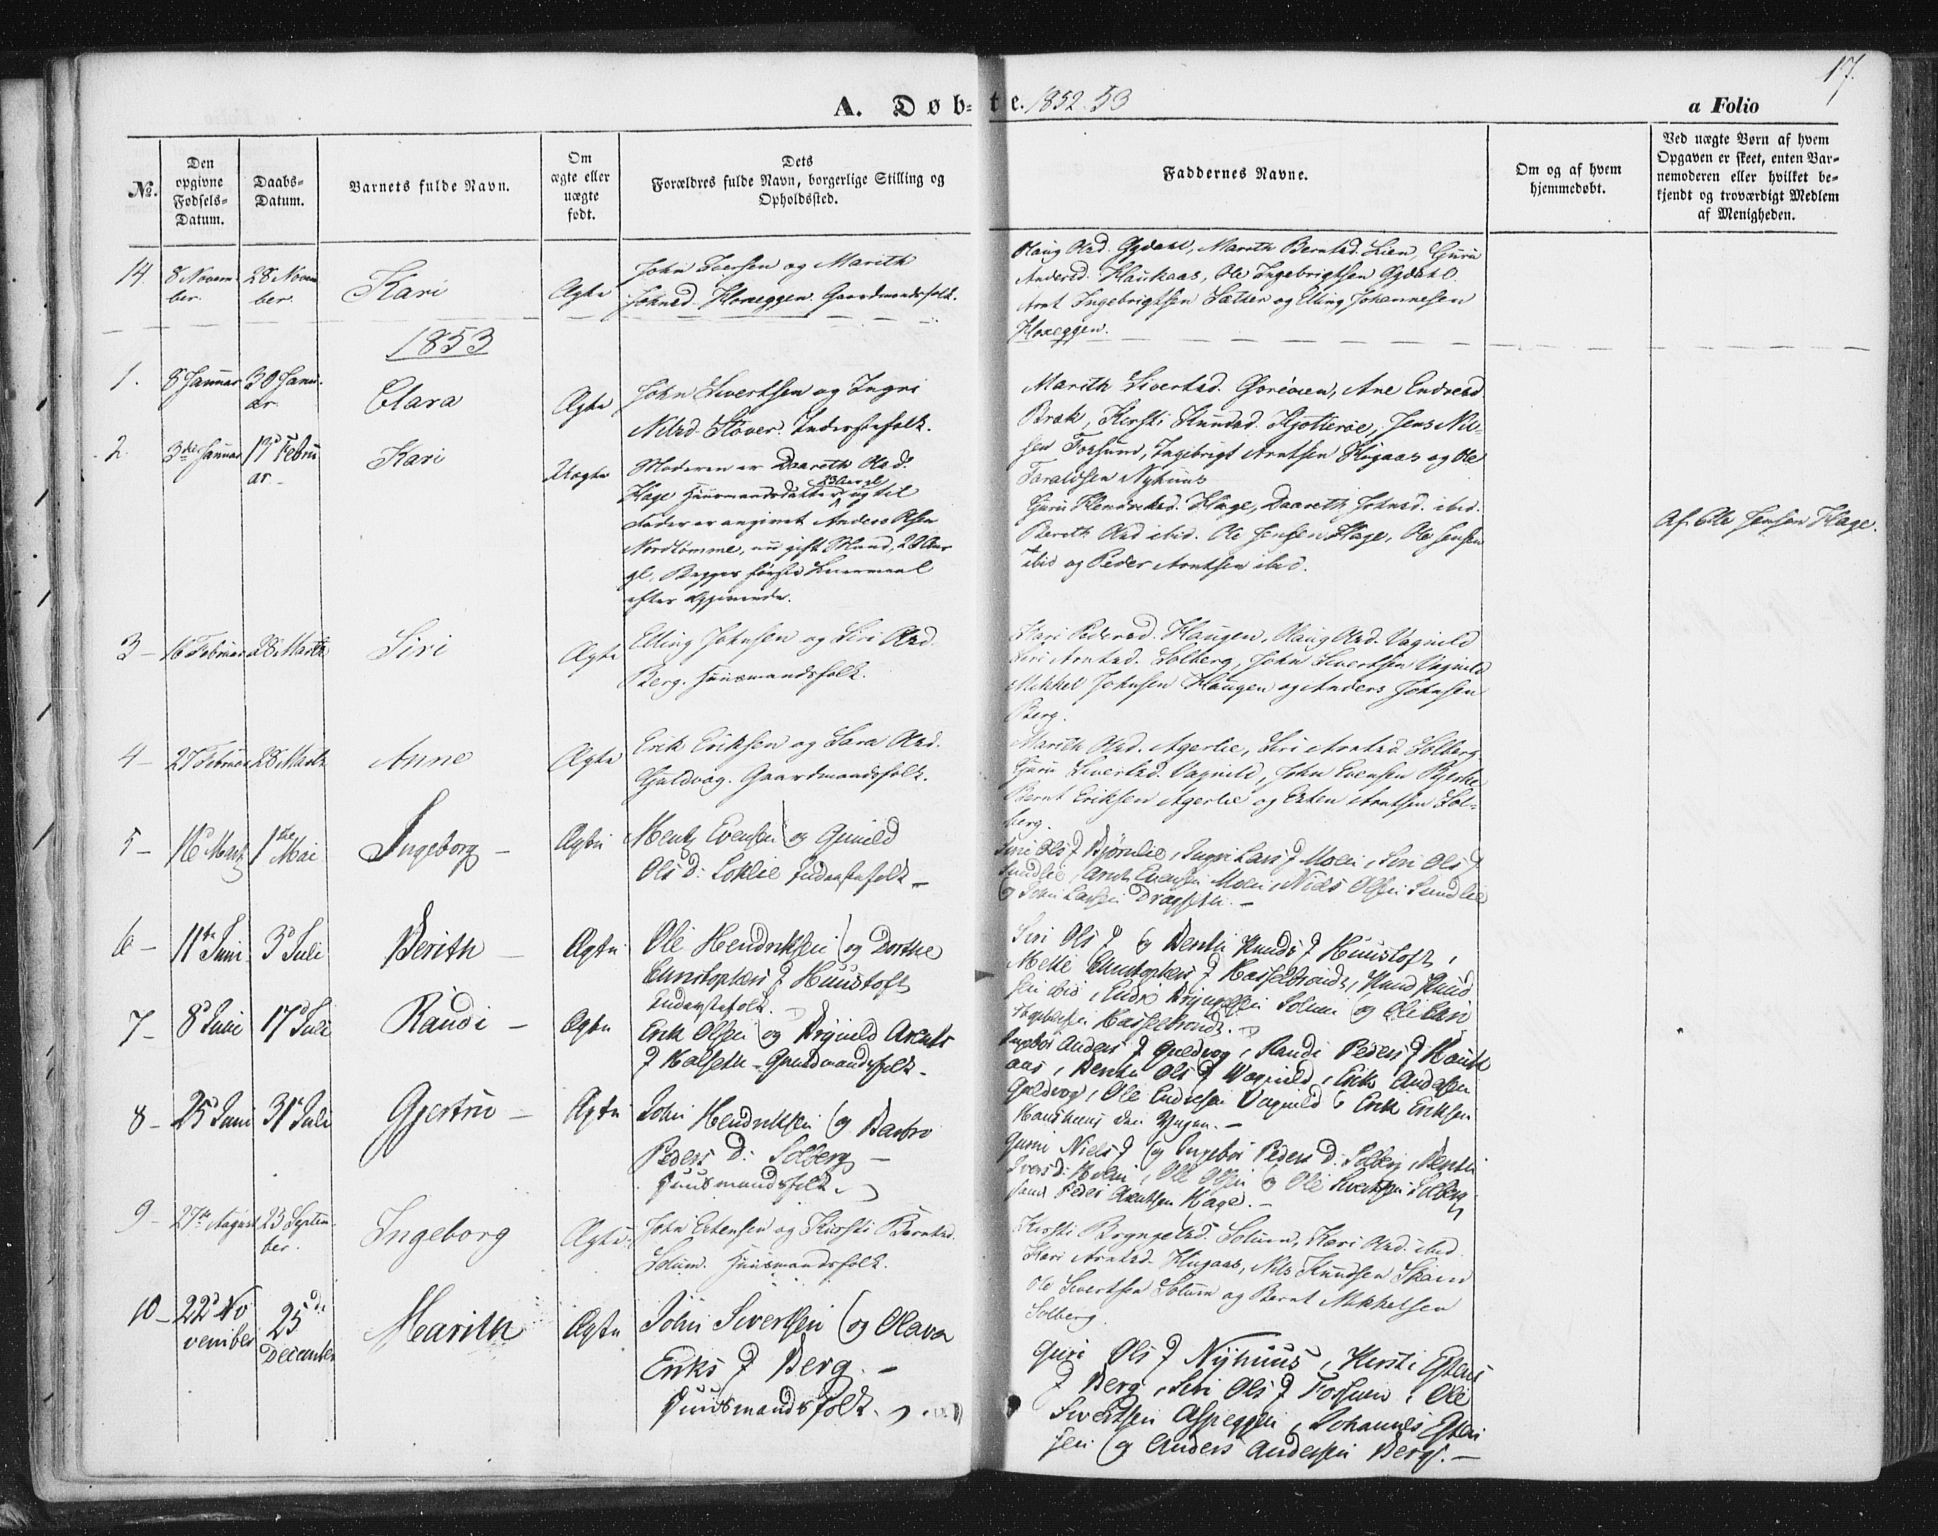 17.
A. Døb-
te. 1852. 53
a Folio
No.
Den
opgivne
Fødsels-
Datum.
Daabs-
Datum.
Barnets fulde Navn.
Om
ægte eller
uægte
født.
Dets
Forældres fulde Navn, borgerlige Stilling og
Opholdssted.
Faddernes Navne.
Om og af hvem
hjemmedøbt.
Ved uægte Børn af hvem
Opgaven er skeet, enten Bar-
nemoderen eller hvilket be-
kjendt og troværdigt Medlem
af Menigheden.
14.
8 Novem-
ber.
28 Novem
ber.
Kari
Ægte
John Iversen og Marith
Johnsd. Hoxeggen. Gaardmandsfolk.
Olaug Olsd. Gydahl, Marith Berntsd. Lien, Guru
Andersd. Haukaas, Ole Ingebrigtsen Gydahl
Arnt Ingebrigtsen Sæther og Elling Johannesen
Hoxeggen.
1853
1.
8 Januar
30 Janu-
ar.
Clara
Ægte
John Sivertsen og Ingri
Nilsd. Stover. Inderstefolk.
Marith Sivertsd. Gorsveen, Ane Endresd.
Brak, Kersti Knudsd. Kjotterøe, Jens Nil-
sen Forsund, Ingebrigt Arntsen Hugaas og Ole
Taraldsen Nyhuus
2.
3die Januar
13d Febru
ar -
Kari
Uægte
Moderen er Daareth Olsd.
Hage Huusmandsdatter, 23 Aar gl. og til
Fader er angivet Anders Olsen
Nordtømme, nu gift Mand, 29 Aar
gl. Begges første Leiermaal
efter Opgivende.
Guru Hendriksd. Hage, Daareth Johnsd. ibid.
Bereth Olsd ibid. Ole Jensen Hage, Ole Jensen
ibid og Peder Arntsen ibid.
Af Ole Jensen Hage.
3 -
16 Februar
28 Marts
Siri
Ægte
Elling Johnsen og Siri Olsd.
Berg. Huusmandsfolk.
Kari Pedersd. Haugen, Olaug Olsd. Vagnild
Siri Arntsd. Solberg, John Sivertsen Vagnild
Mikkel Johnsen Haugen og Anders Johnsen
Berg.
4 -
27 Februar
28 Marts
Anne
Ægte
Erik Eriksen og Sara Olsd.
Gjuldvog. Gaardmandsfolk.
Marith Olsd. Agerlie, Siri Arntsd. Solberg
Guru Sivertsd. Vagnild, John Evensen Bjerke
Bernt Eriksen Agerlie og Esten Arntsen Sol-
berg.
5 -
16d Marts
1ste Mai
Ingeborg -
Ægte
Mentz Evensen og Gunild
Ols D: Loklie Inderstefolk -
Siri Ols D Bjørnlie, Ingri Lars D Moen, Siri Ols D
Sundlie, Arnt Evensen Moen, Niels Olsen Sundlie
og John Larsen Dragseth. -
6 -
11te Juni
3d Juli
Berith -
Ægte
Ole Hendriksen og Dorthe
Christophers D Huustoft
Inderstefolk.
Siri Ols D og Benthe Knuds D Huustoft,
Mette Christophers D Hasselbrondt, Knud Knud
sen ibid, Endre Brynelsen Solum og Ole
Hasselbrondt.
7 -
8d Juni
17d Juli
Randi -
Ægte
Erik Olsen og Brynild Arents
D Halseth - Gaardmandsfolk -
Ingebor Anders D Guldvog, Randi Peders D Hauk
aas, Benthe Ols D Vagnild, Erik Andersen
Guldvog, Ole Endresen Vagnild & Erik Eriksen
Haukaas den Yngre. -
8 -
25d Juni
31d Juli
Gjertru -
Ægte
John Hendriksen og Barbro
Peders D: Solberg -
Huusmandsfolk.
Guru Niels D og Ingebor Peders D: Solberg, Benthe
Ivers D: Holm, Ole Olsen og Ole Sivertsen Solberg
samt Peder Arentsen Hage. -
9 -
27de August
23 Septem-
ber.
Ingeborg
Ægte
John Estensen og Kirsti Berntsd.
Solum. Huusmandsfolk.
Kirsti Bryngelsd. Solum, Kari Olsd. ibid.
Kari Arntsd. Hugaas, Nils Knudsen Skam
Ole Sivertsen Solum og Bernt Mikkelsen
Solberg.
10 -
22d No
vember
25de
December
Marith
Ægte
John Sivertsen og Olava
Eriks D Berg. -
Huusmandsfolk.
Guri Ols D Nyhuus, Kersti Estens
D Berg, Siri Ols D Fossum, Ole
Sivertsen Aspeggen, Johannes Esten
sen og Anders Andersen Berg. -